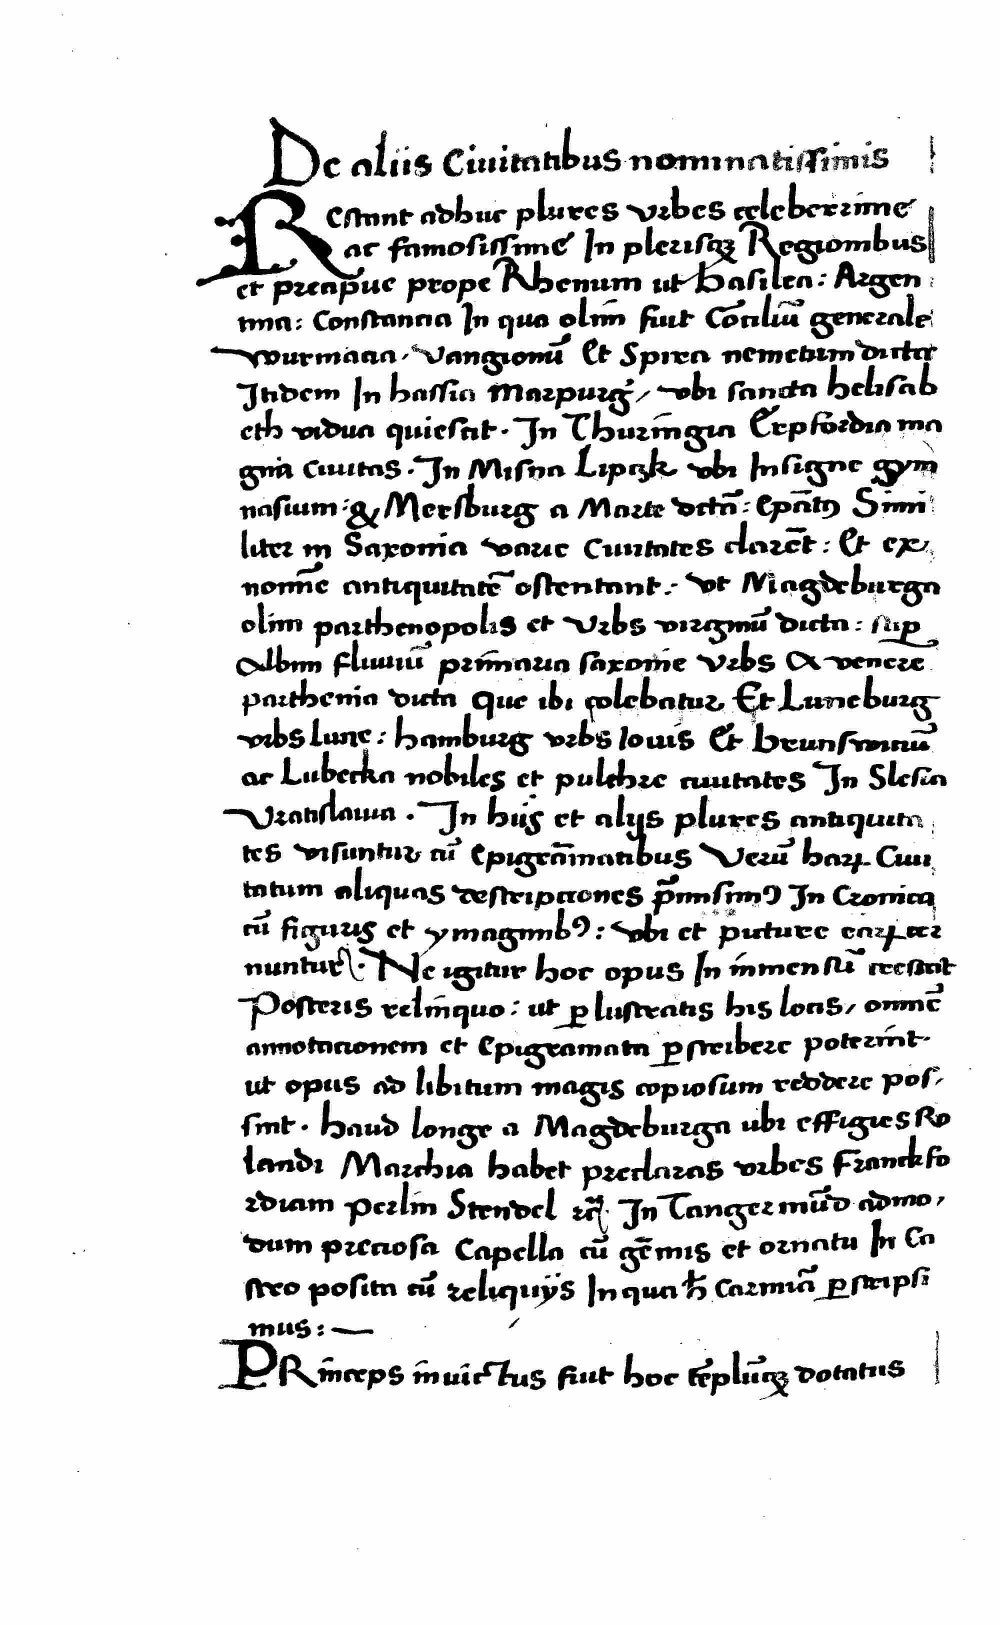 De aliis Ciuitatibus nominatissimis
REstant adhuc plures vrbes celeberrime
ac famosissime In plerisqꝫ Regionibus
et precipue prope Rhenum ut Basilea: Argen
tina: Constancia In qua olim fuit Cōciliū generale
wurmacia. Vangionū Et Spira nemetum dicta
Itidem In hassia Marpurg, vbi sancta helisab
eth vidua quiescit. In Thuringia Erpfordia ma
gna ciuitas. In Misna Lipczk vbi Insigne gym
nasium: & Mersburg a Marte dictā: Simi
liter in Saxonia varie ciuitates clarēt: Et ex
nomīe antiquitatē ostentant. Vt Magdeburga
olim parthenopolis et Vrbs virginū dicta: sup̄
Albim fluuiū primaria saxonie Vrbs & venere
parthenia dicta Que ibi colebatur Et Luneburg
vrbs lune: hamburg vrbs Iouis Et Brunswiciū
ac Lubecka nobiles et pulchre ciuitates In Slesia
Vratislauia. In hijs et alijs plures antiquita
tes visuntur cū epigrāmatibus Verū harꝝ Ciui
tatum aliquas descripciones p̄misimꝰ In Cronica
cū figuris et ymaginibꝰ: vbi et picture earꝝ cer
nuntur. Ne igitur hoc opus In inmensū crescat
Posteris relinquo: ut ꝑlustratis his locis, omnē
annotacionem et Epigramata ꝑscribere poterint.
ut opus ad libitum magis copiosum reddere pos,
sint. haud longe a Magdeburga ubi effigies Ro
landi Marchia habet preclaras vrbes Franckfo
rdiam perlin Stendel In Tangermūd admo,
dum preciosa Capella cū gēmis et ornatu In Ca
stro posita cū reliquijs In qua carmīa ꝑscripsi
mus:
PRinceps inuictus fuit hoc tēplūqꝫ dotatus